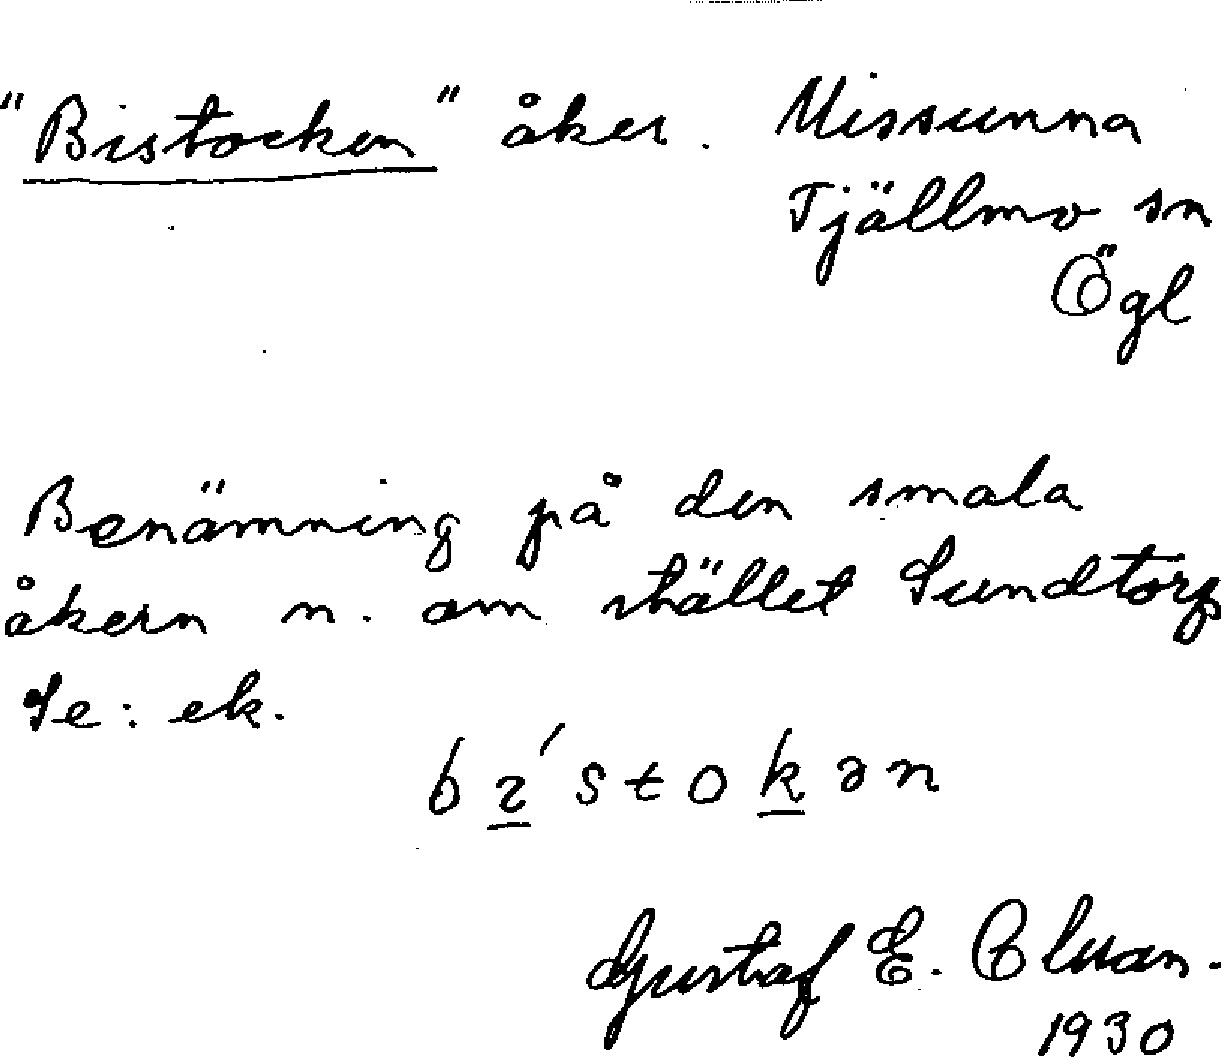 "Bistocken" åker. Missunna
Tjällmo sn
Ögl
Benämning på den smala
åkern n. om stället Sundtorp
Se: ek.
bɩ́stokən
Gustaf E.
1930